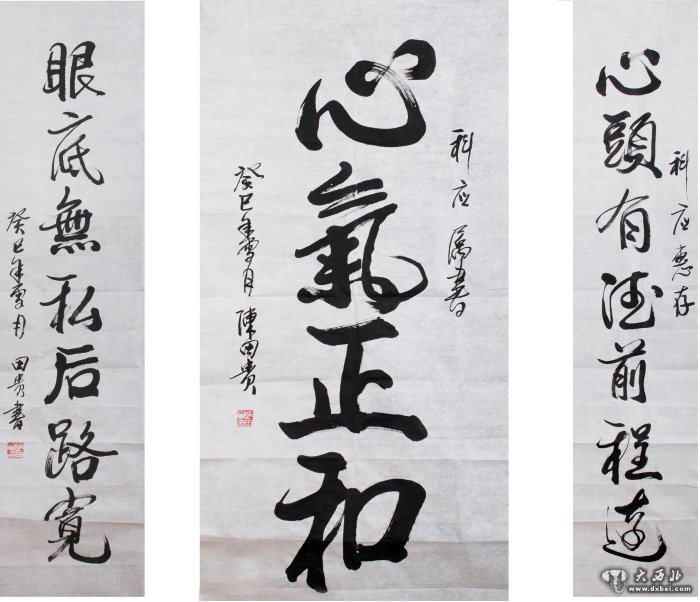 心頭有德前程遠
科应惠存
心氣正和
科应属書
癸巳年雪月 陳田贵
眼底無私后路寬
癸巳年雪月 田贵書
大西北
www.dxbei.com